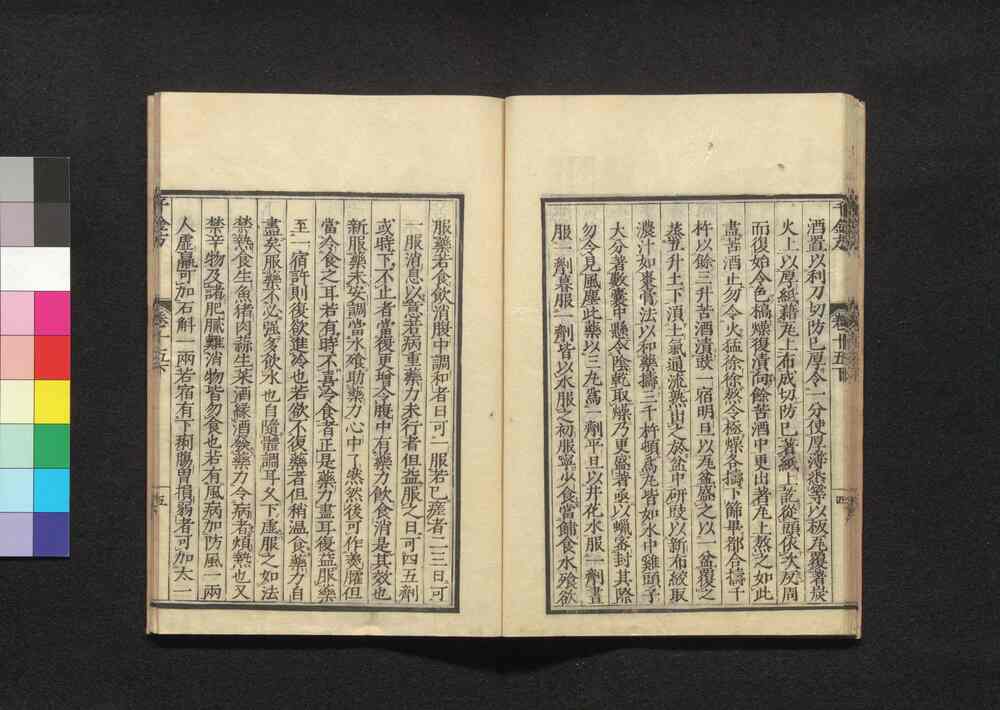 酒置以利刀切防己厚令一分使厚薄悉等以板瓦覆著炭
火上以厚紙藉瓦上布成切防己著紙上訖從頭依次反周
而復始令色槁燥復漬向餘苦酒中更出著瓦上熬之如此
盡苦酒止勿令火猛徐徐熬令極燥各擣下篩畢都合擣千
杵以餘三升苦酒漬豉一宿明旦以瓦盆盛之以一盆覆之
蒸五升土下須土氣通流熟出之於盆中研豉以新布絞取
濃汁如棗膏法以和藥擣三千杵頓為丸皆如水中雞頭子
大分著數囊中懸令陰乾取燥乃更盛著亟以蠟密封其際
勿令見風塵此藥以三九為一劑平旦以井花水服一劑晝
服一劑暮服一劑皆以水服之初服寧少食當餔食水飱欲
服藥若食飲消腹中調和者日可一服若已瘥者二三日可
一服消息以意若病重藥力未行者但益服之日可四五劑
或時下不止者當復更增令腹中有藥力飲食消是其效也
新服藥未安調當水飱助藥力心中了然然後可作羹臛但
當冷食之耳若有時不喜冷食者正是藥力盡耳復益服藥
至一宿許則復飲進冷也若欲不復藥者但稍温食藥力自
盡矣服藥不必強多飲水也自隨體調耳夂下虛服之如法
禁熱食生魚猪肉蒜生菜酒緣酒發藥力令病者煩熱也又
禁辛物及諸肥膩難消物皆勿食也若有風病加防風一兩
人虛羸可加石斛一兩若宿有下痢腸胃損弱者可加太一
千金方
卷十五下
五
千金方
卷十五下
四